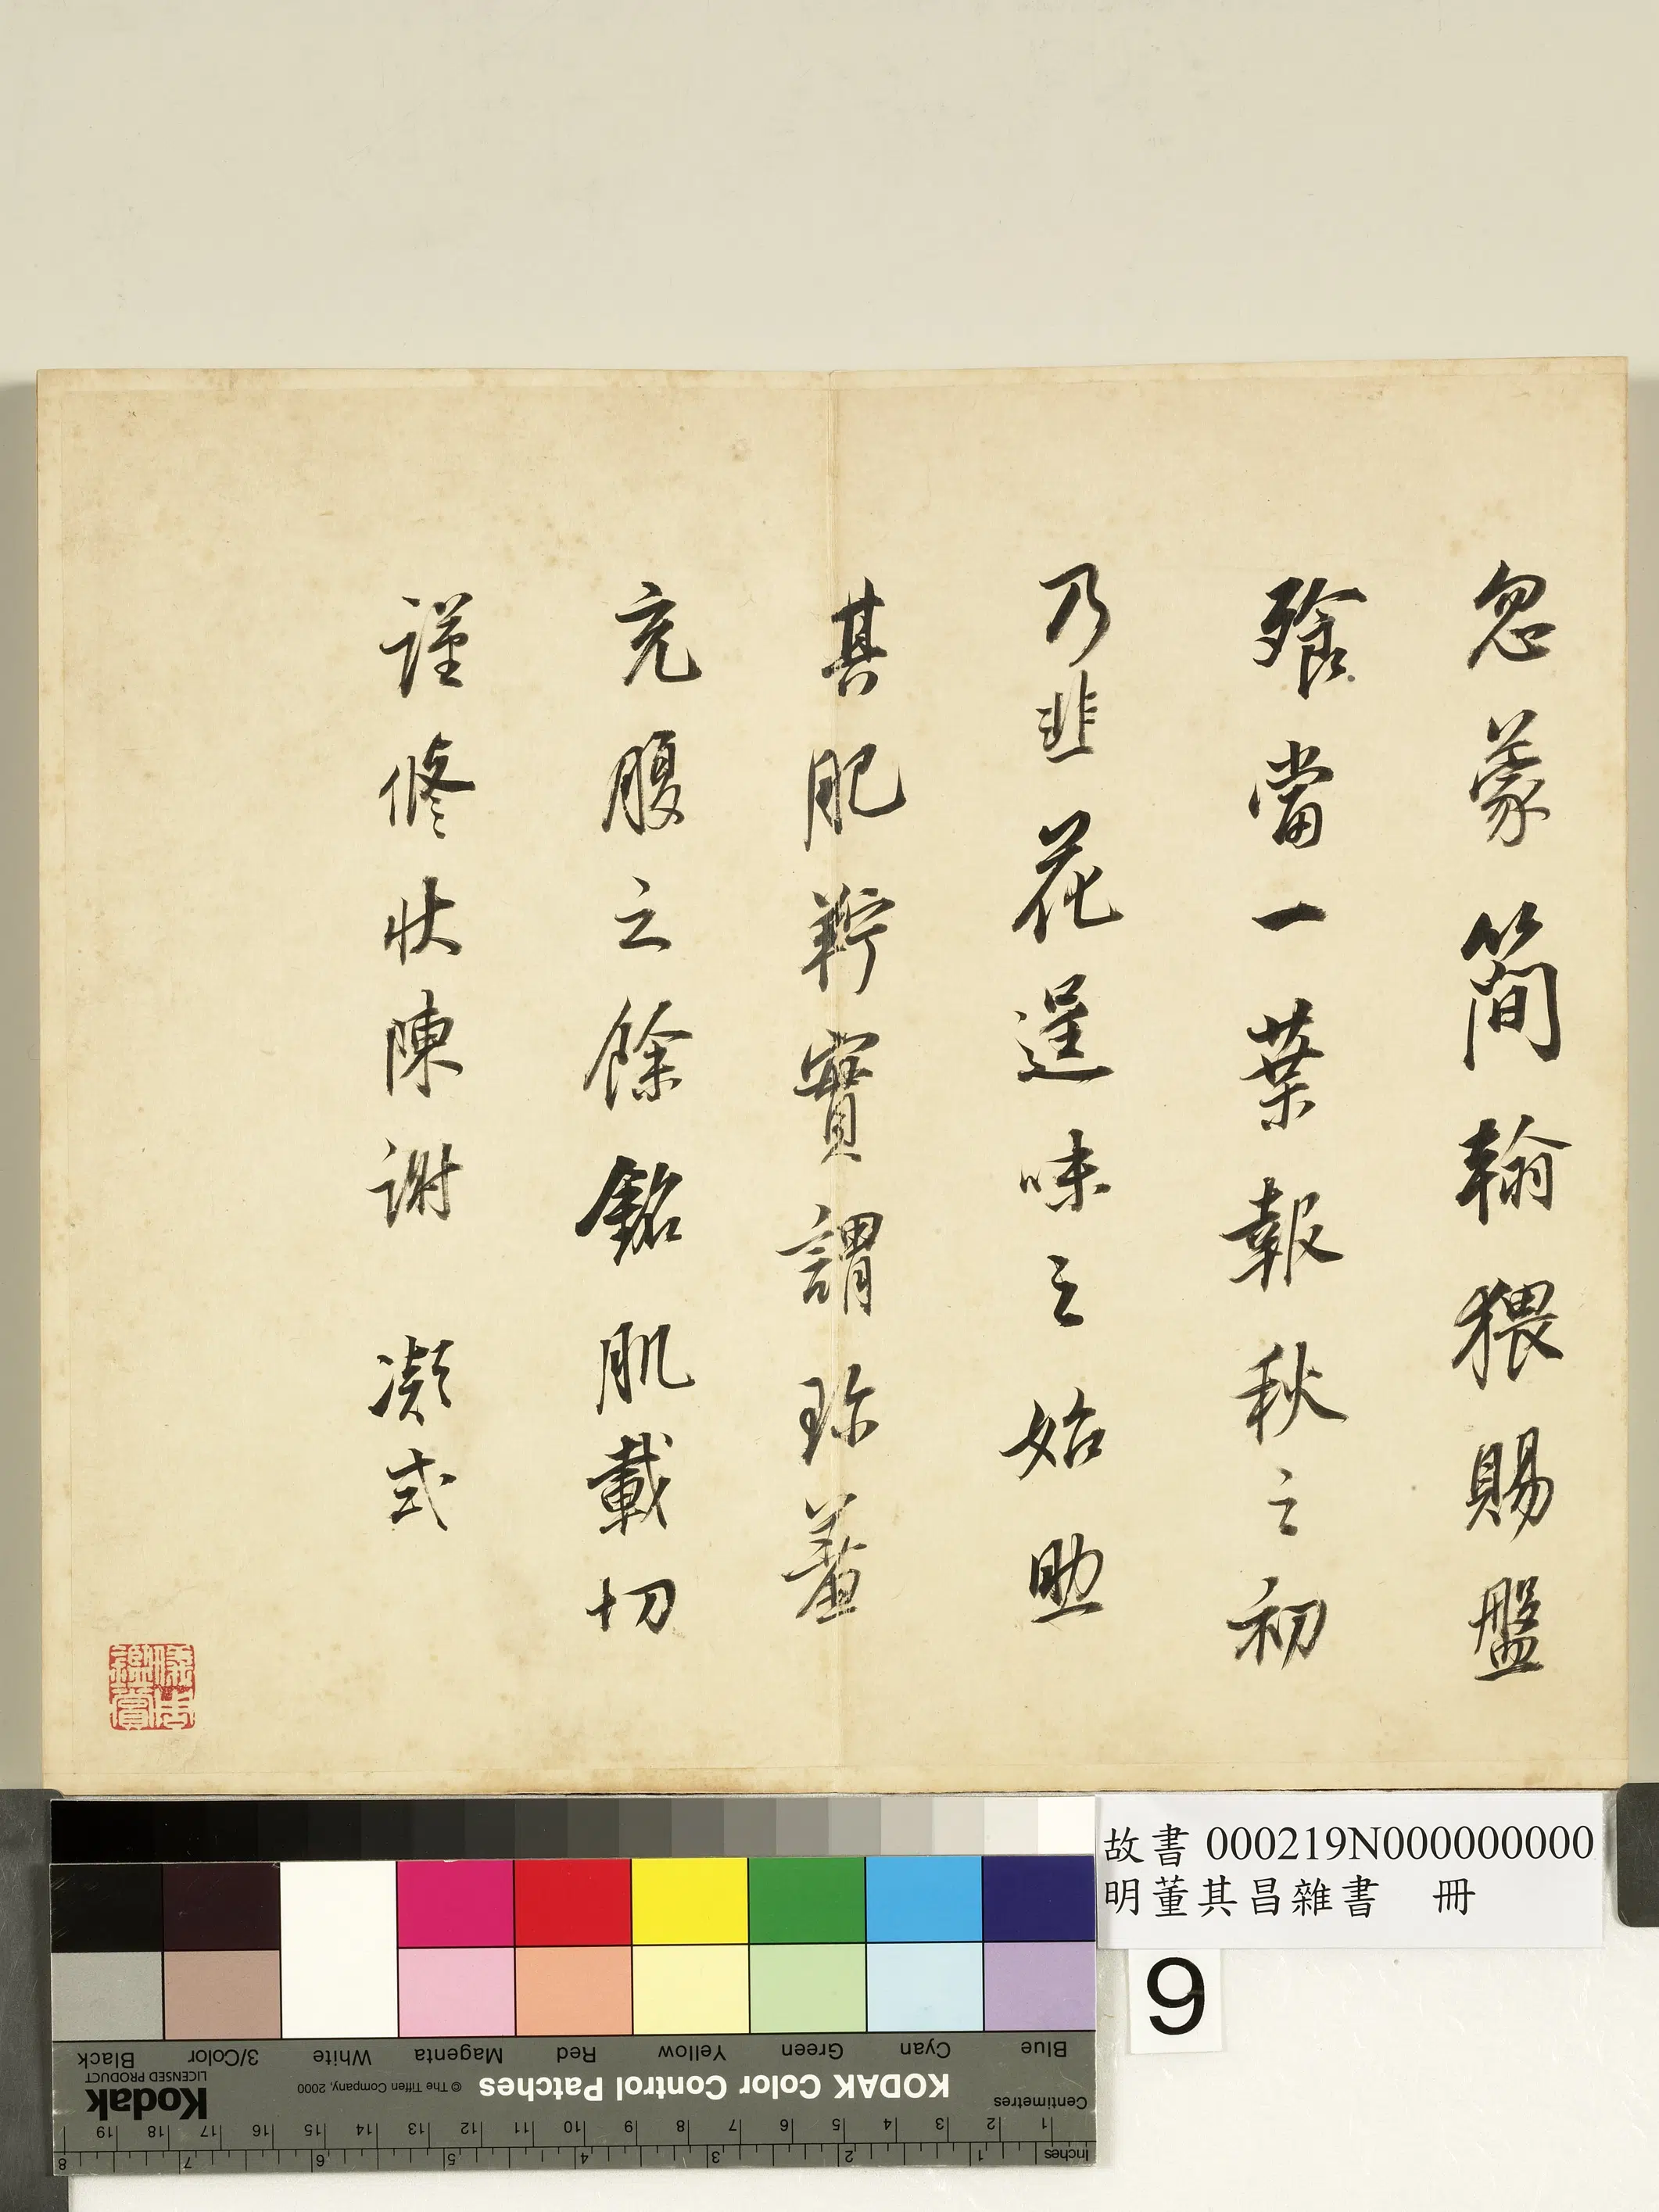 忽蒙簡翰猥賜盤
飧當一葉報秋之初
乃韭花逞味之始助
其肥羜實謂珍羞
充腹之餘銘肌載切
謹修狀陳謝 凝式
故書 000219N000000000
明董其昌雜書 冊
9
Blue Cyan Green Yellow Red Magenta White 3/Color Black
KODAK Color Control Patches © The Tiffen Company, 2000 Kodak
LICENSED PRODUCT
Centimetres 1 2 3 4 5 6 7 8 9 10 11 12 13 14 15 16 17 18 19
Inches 1 2 3 4 5 6 7 8